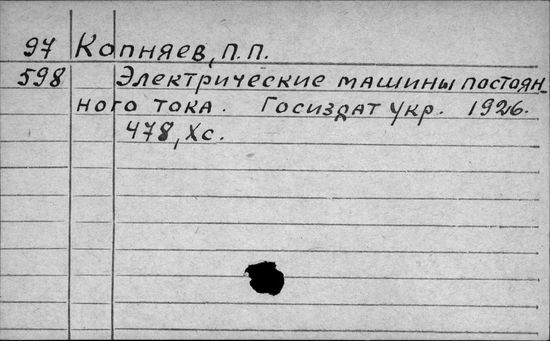 97 Копняев, П. П.
598 Электрические машины постоян-
ного тока. Госиздат Укр. 1926.
478, Xс.